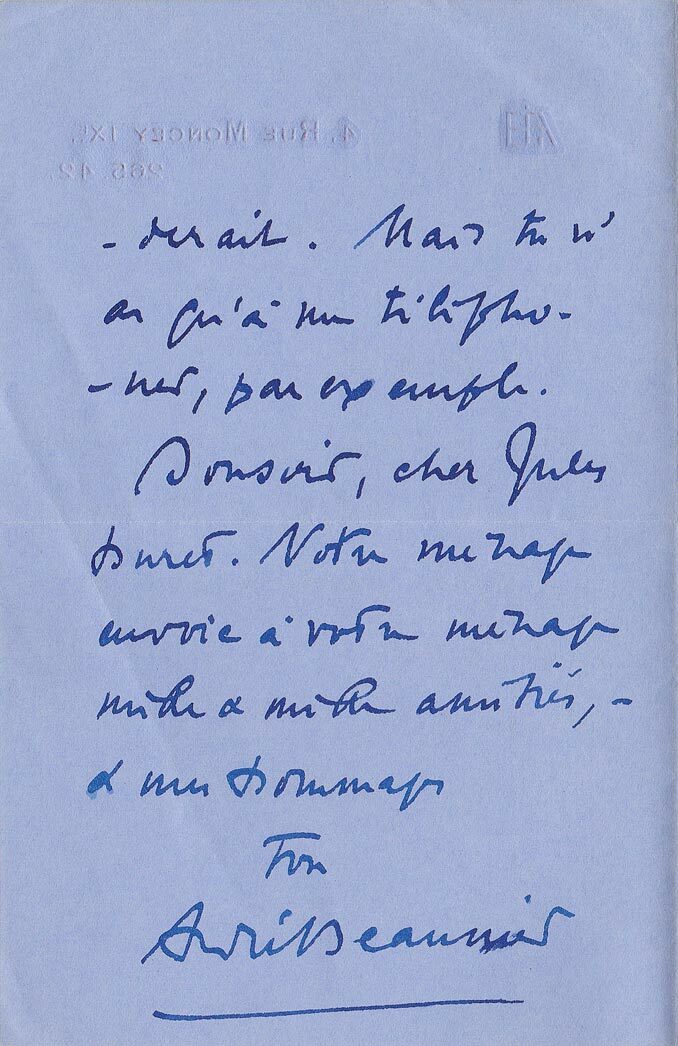 4, RUE MONCEY IXE.
-derait. Mais tu n'
as qu'à me télépho-
-ner, par exemple.
Bonsoir, cher Jules
Huret. Notre ménage
envoie à votre ménage
mille & mille amitiés, -
& mes hommages
Ton
André Beaunier